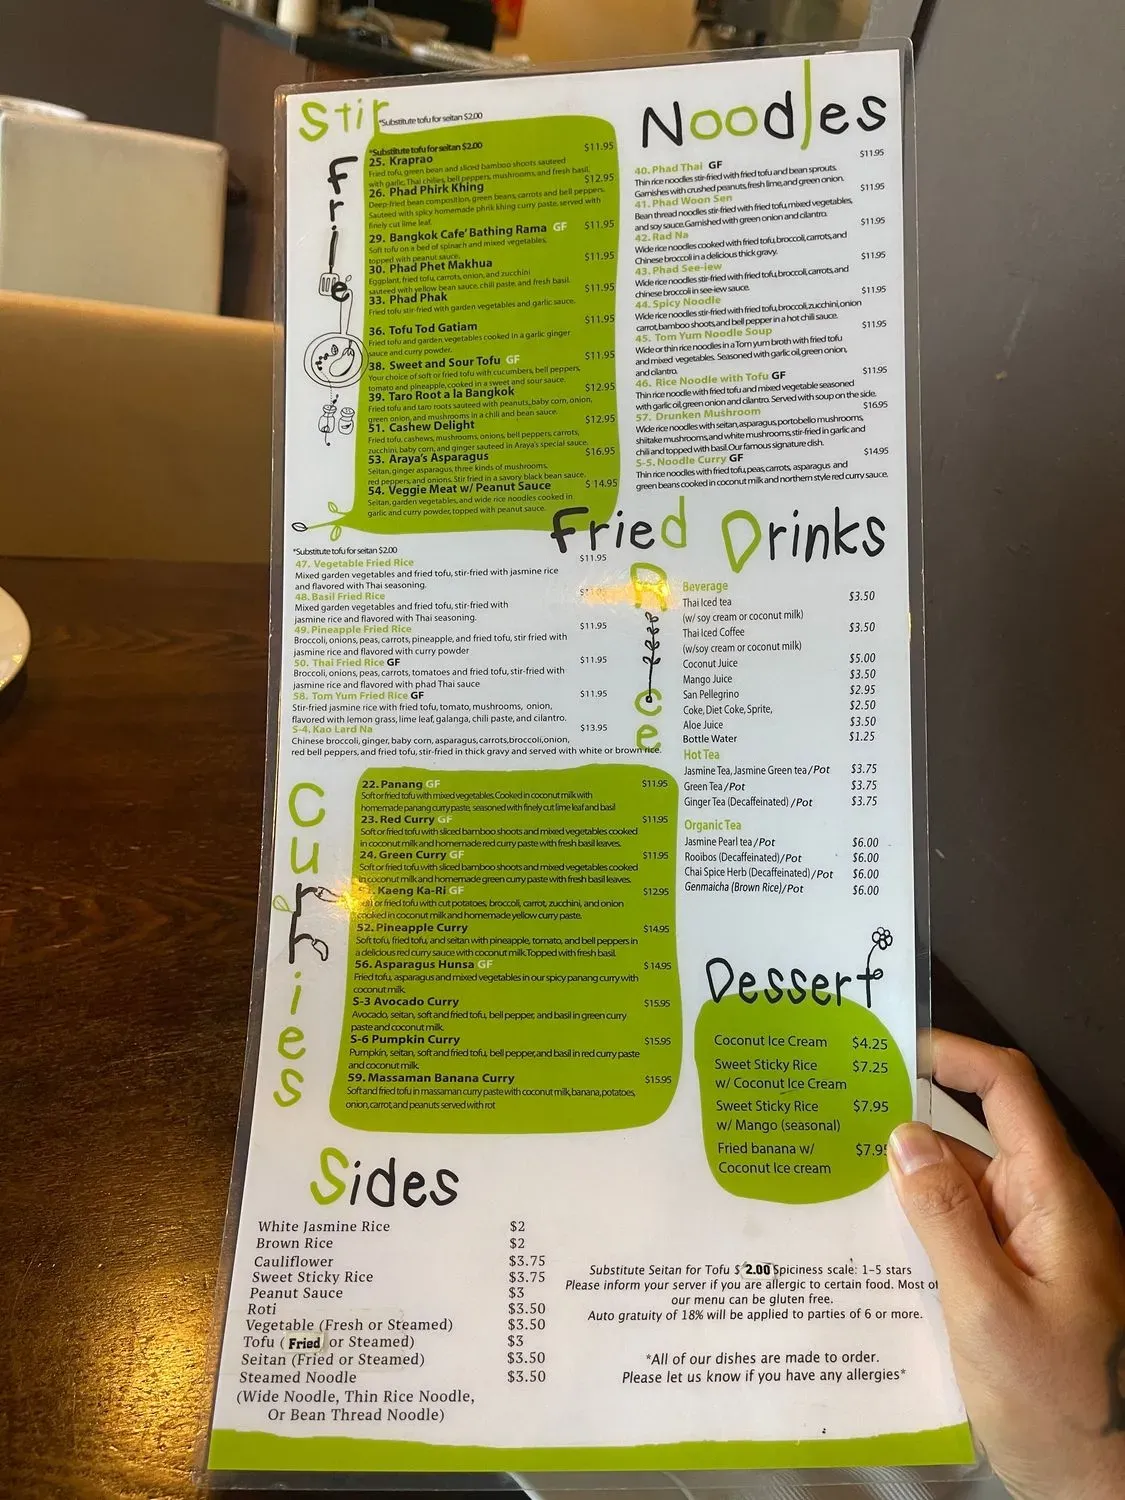 Stir
*Substitute tofu for seitan $2.00
Fried
*Substitute tofu for seitan $2.00
25. Kraprao $11.95
Fried tofu, green bean and sliced bamboo shoots sauteed
with garlic, Thai chilies, bell peppers, mushrooms, and fresh basil.
26. Phad Phirk Khing $12.95
Deep-fried bean composition, green beans, carrots and bell peppers.
Sauteed with spicy homemade phrik khing curry paste, served with
finely cut lime leaf.
29. Bangkok Cafe' Bathing Rama GF $11.95
Soft tofu on a bed of spinach and mixed vegetables,
topped with peanut sauce.
30. Phad Phet Makhua $11.95
Eggplant, fried tofu, carrots, onion, and zucchini
sauteed with yellow bean sauce, chili paste, and fresh basil.
33. Phad Phak $11.95
Fried tofu stir-fried with garden vegetables and garlic sauce.
36. Tofu Tod Gatiam $11.95
Fried tofu and garden vegetables cooked in a garlic ginger
sauce and curry powder.
38. Sweet and Sour Tofu GF $11.95
Your choice of soft or fried tofu with cucumbers, bell peppers,
tomato and pineapple, cooked in a sweet and sour sauce.
39. Taro Root a la Bangkok $12.95
Fried tofu and taro roots sauteed with peanuts, baby corn, onion,
green onion, and mushrooms in a chili and bean sauce.
51. Cashew Delight $12.95
Fried tofu, cashews, mushrooms, onions, bell peppers, carrots,
zucchini, baby corn, and ginger sauteed in Araya's special sauce.
53. Araya's Asparagus $16.95
Seitan, ginger asparagus, three kinds of mushrooms,
red peppers, and onions. Stir fried in a savory black bean sauce.
54. Veggie Meat w/ Peanut Sauce $ 14.95
Seitan, garden vegetables, and wide rice noodles cooked in
garlic and curry powder, topped with peanut sauce.
Noodles
40. Phad Thai GF $11.95
Thin rice noodles stir-fried with fried tofu and bean sprouts.
Garnishes with crushed peanuts, fresh lime, and green onion.
41. Phad Woon Sen $11.95
Bean thread noodles stir-fried with fried tofu, mixed vegetables,
and soy sauce. Garnished with green onion and cilantro.
42. Rad Na $11.95
Wide rice noodles cooked with fried tofu, broccoli, carrots, and
Chinese broccoli in a delicious thick gravy.
43. Phad See-iew $11.95
Wide rice noodles stir-fried with fried tofu, broccoli, carrots, and
chinese broccoli in see-iew sauce.
44. Spicy Noodle $11.95
Wide rice noodles stir-fried with fried tofu, broccoli, zucchini, onion
carrot, bamboo shoots, and bell pepper in a hot chili sauce.
45. Tom Yum Noodle Soup $11.95
Wide or thin rice noodles in a Tom yum broth with fried tofu
and mixed vegetables. Seasoned with garlic oil, green onion,
and cilantro.
46. Rice Noodle with Tofu GF $11.95
Thin rice noodle with fried tofu and mixed vegetable seasoned
with garlic oil, green onion and cilantro. Served with soup on the side.
57. Drunken Mushroom $16.95
Wide rice noodles with seitan, asparagus, portobello mushrooms,
shiitake mushrooms, and white mushrooms, stir-fried in garlic and
chili and topped with basil. Our famous signature dish.
S-5. Noodle Curry GF $14.95
Thin rice noodles with fried tofu, peas, carrots, asparagus and
green beans cooked in coconut milk and northern style red curry sauce.
Fried Rice
*Substitute tofu for seitan $2.00
47. Vegetable Fried Rice $11.95
Mixed garden vegetables and fried tofu, stir-fried with jasmine rice
and flavored with Thai seasoning.
48. Basil Fried Rice
Mixed garden vegetables and fried tofu, stir-fried with
jasmine rice and flavored with Thai seasoning.
49. Pineapple Fried Rice $11.95
Broccoli, onions, peas, carrots, pineapple, and fried tofu, stir fried with
jasmine rice and flavored with curry powder
50. Thai Fried Rice GF $11.95
Broccoli, onions, peas, carrots, tomatoes and fried tofu, stir-fried with
jasmine rice and flavored with phad Thai sauce
58. Tom Yum Fried Rice GF $11.95
Stir-fried jasmine rice with fried tofu, tomato, mushrooms, onion,
flavored with lemon grass, lime leaf, galanga, chili paste, and cilantro.
S-4. Kao Lard Na $13.95
Chinese broccoli, ginger, baby corn, asparagus, carrots, broccoli, onion,
red bell peppers, and fried tofu, stir-fried in thick gravy and served with white or brown rice.
Drinks
Beverage
Thai Iced tea $3.50
(w/ soy cream or coconut milk)
Thai Iced Coffee $3.50
(w/soy cream or coconut milk)
Coconut Juice $5.00
Mango Juice $3.50
San Pellegrino $2.95
Coke, Diet Coke, Sprite, $2.50
Aloe Juice $3.50
Bottle Water $1.25
Hot Tea
Jasmine Tea, Jasmine Green tea/Pot $3.75
Green Tea/Pot $3.75
Ginger Tea (Decaffeinated) /Pot $3.75
Organic Tea
Jasmine Pearl tea/Pot $6.00
Rooibos (Decaffeinated)/Pot $6.00
Chai Spice Herb (Decaffeinated)/Pot $6.00
Genmaicha (Brown Rice)/Pot $6.00
Currhies
22. Panang GF $11.95
Soft or fried tofu with mixed vegetables. Cooked in coconut milk with
homemade panang curry paste, seasoned with finely cut lime leaf and basil
23. Red Curry GF $11.95
Soft or fried tofu with sliced bamboo shoots and mixed vegetables cooked
in coconut milk and homemade red curry paste with fresh basil leaves.
24. Green Curry GF $11.95
Soft or fried tofu with sliced bamboo shoots and mixed vegetables cooked
in coconut milk and homemade green curry paste with fresh basil leaves.
Kaeng Ka-Ri GF $12.95
or fried tofu with cut potatoes, broccoli, carrot, zucchini, and onion
cooked in coconut milk and homemade yellow curry paste.
52. Pineapple Curry $14.95
Soft tofu, fried tofu, and seitan with pineapple, tomato, and bell peppers in
a delicious red curry sauce with coconut milk. Topped with fresh basil.
56. Asparagus Hunsa GF $ 14.95
Fried tofu, asparagus and mixed vegetables in our spicy panang curry with
coconut milk.
S-3 Avocado Curry $15.95
Avocado, seitan, soft and fried tofu, bell pepper, and basil in green curry
paste and coconut milk.
S-6 Pumpkin Curry $15.95
Pumpkin, seitan, soft and fried tofu, bell pepper, and basil in red curry paste
and coconut milk.
59. Massaman Banana Curry $15.95
Soft and fried tofu in massaman curry paste with coconut milk, banana, potatoes,
onion, carrot, and peanuts served with rot
Dessert
Coconut Ice Cream $4.25
Sweet Sticky Rice $7.25
w/ Coconut Ice Cream
Sweet Sticky Rice $7.95
w/ Mango (seasonal)
Fried banana w/ $7.95
Coconut Ice cream
Sides
White Jasmine Rice $2
Brown Rice $2
Cauliflower $3.75
Sweet Sticky Rice $3.75
Peanut Sauce $3
Roti $3.50
Vegetable (Fresh or Steamed) $3.50
Tofu ( Fried or Steamed) $3
Seitan (Fried or Steamed) $3.50
Steamed Noodle $3.50
(Wide Noodle, Thin Rice Noodle,
Or Bean Thread Noodle)
Substitute Seitan for Tofu $ 2.00 Spiciness scale: 1-5 stars
Please inform your server if you are allergic to certain food. Most of
our menu can be gluten free.
Auto gratuity of 18% will be applied to parties of 6 or more.
*All of our dishes are made to order.
Please let us know if you have any allergies*